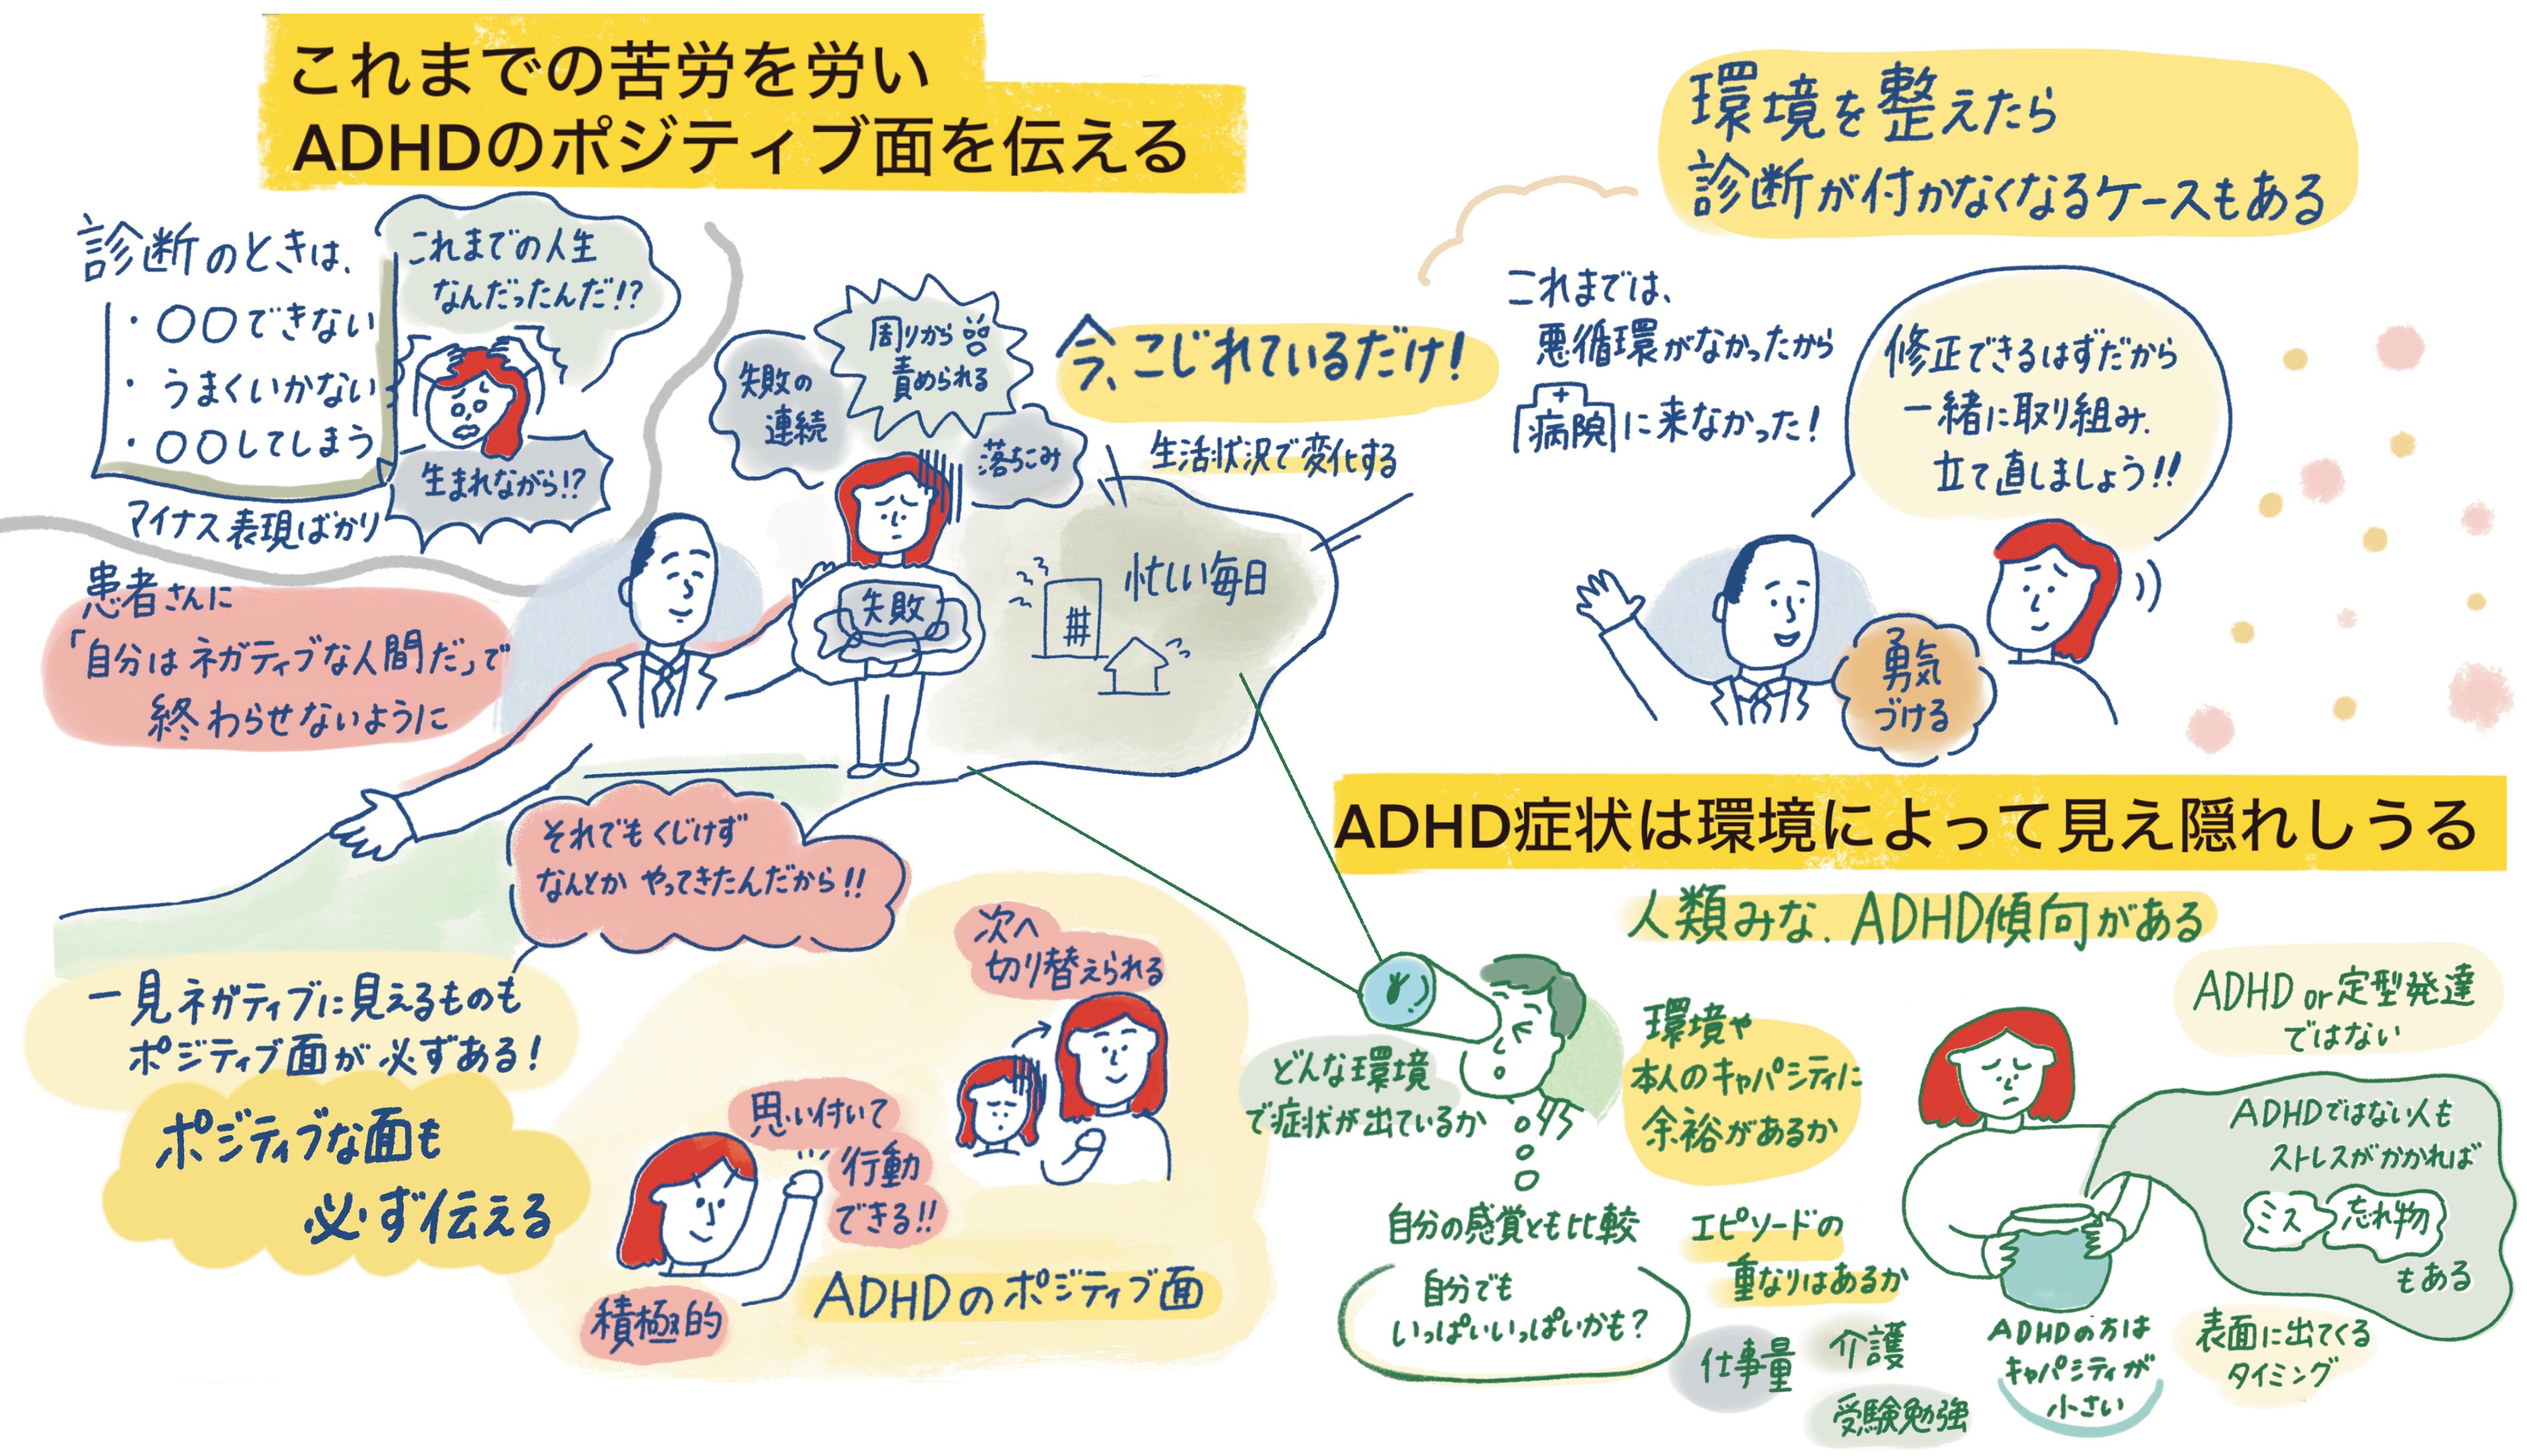 これまでの苦労を労い
ADHDのポジティブ面を伝える
診断のときは、
・〇〇できない
・うまくいかない
・〇〇してしまう
マイナス表現ばかり
これまでの人生
なんだったんだ!?
生まれながら!?
患者さんに
「自分はネガティブな人間だ」で
終わらせないように
失敗の
連続
周りから
責められる
落ちこみ
失敗
今、こじれているだけ!
生活状況で変化する
忙しい毎日
それでもくじけず
なんとか やってきたんだから!!
一見ネガティブに見えるものも
ポジティブ面が必ずある!
ポジティブな面も
必ず伝える
次へ
切り替えられる
思い付いて
行動
できる!!
積極的
ADHDのポジティブ面
環境を整えたら
診断が付かなくなるケースもある
これまでは、
悪循環がなかったから
病院に来なかった!
修正できるはずだから
一緒に取り組み、
立て直しましょう!!
勇気
づける
ADHD症状は環境によって見え隠れしうる
人類みな、ADHD傾向がある
どんな環境
で症状が出ているか
自分の感覚とも比較
自分でも
いっぱいいっぱいかも?
環境や
本人のキャパシティに
余裕があるか
エピソードの
重なりはあるか
仕事量
介護
受験勉強
ADHD or 定型発達
ではない
ADHDではない人も
ストレスがかかれば
ミス 忘れ物
もある
ADHDの方は
キャパシティが
小さい
表面に出てくる
タイミング